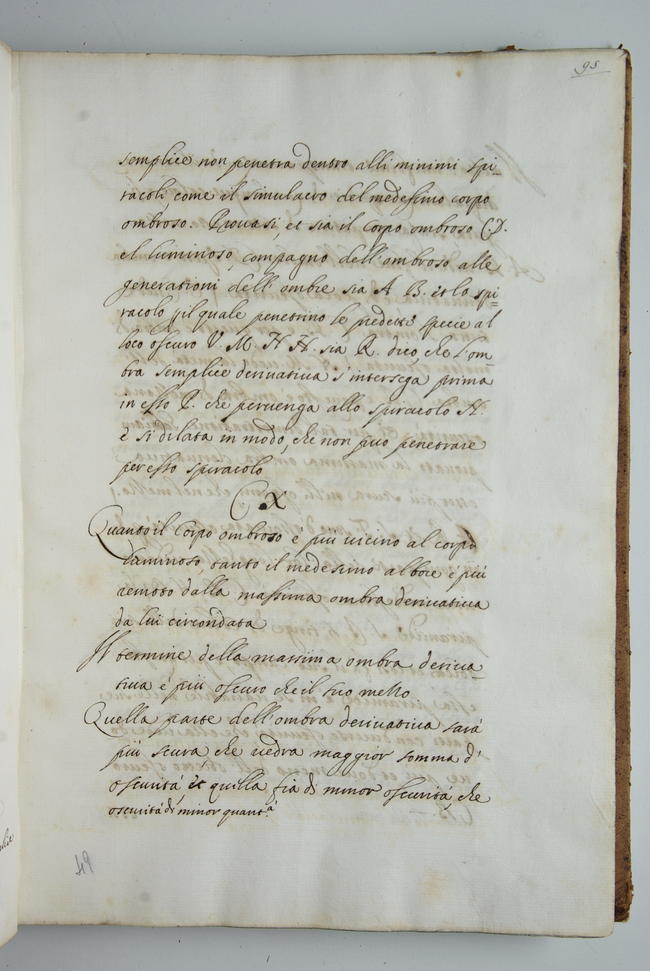 95
semplice non penetra dentro alli minimi spi-
racoli, come il simulacro del medesimo corpo
ombroso. Prouasi, et sia il corpo ombroso C.D.
el luminoso, compagno dell'ombroso alle
generationi dell'ombre sia A B. et lo spi=
racolo il quale penetrino le predette specie al
loco oscuro V. M. N. sia R. dico, che l'om-
bra semplice deriuatiua s'intersega prima
in esso P. che peruenga allo spiracolo N.
è si dilata in modo, che non puo penetrare
per esso spiracolo
Quanto il corpo ombroso è piu uicino al corpo
luminoso, tanto il medesimo albore è più
remoto dalla massima ombra deriuatiua
da lui circondata
Il termine della massima ombra deriua-
tiua è più oscuro che il suo mezzo
Quella parte dell'ombra deriuatiua sarà
più scura, che uedra maggior somma d'
oscurità, et quilla fia di minor oscurità, che
oscurità di minor quant.à
49